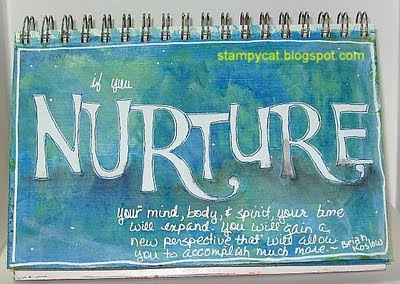 stampycat.blogspot.com
if you
NURTURE,
your mind, body, & spirit, your time
will expand. You will gain a
new perspective that will allow
you to accomplish much more. ~ Brian
Koslow